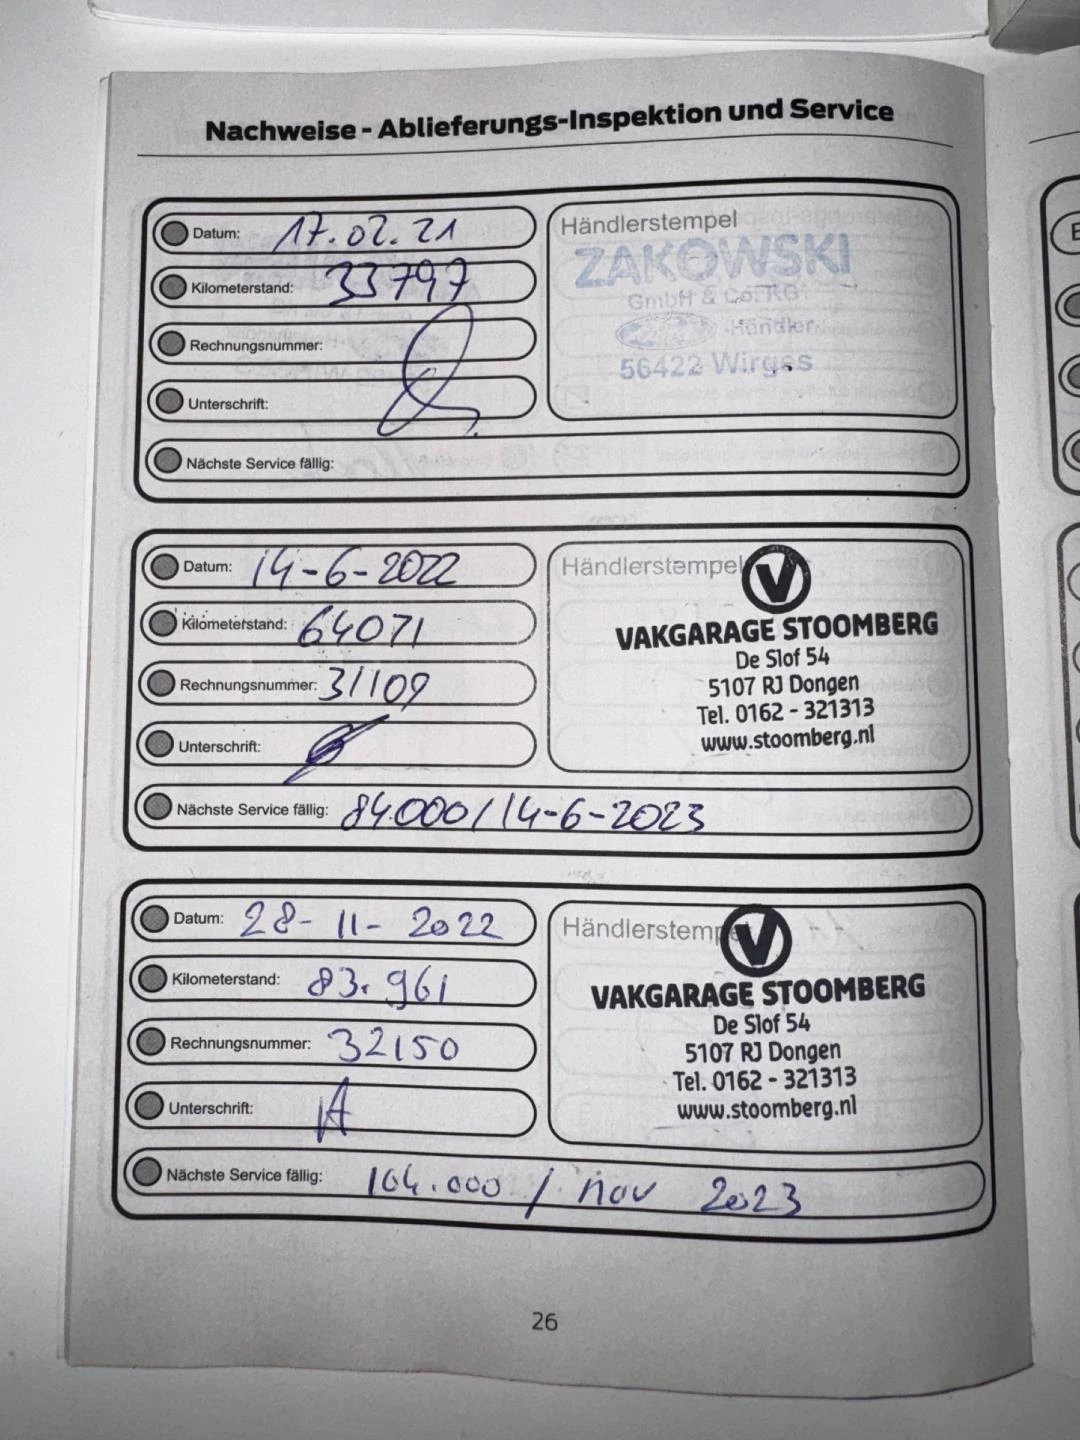 Nachweise - Ablieferungs-Inspektion und Service
Datum: 17.02.21
Kilometerstand: 33797
Rechnungsnummer:
Unterschrift:
Nächste Service fällig:
Händlerstempel
ZAKOWSKI
GmbH & Co. KG
-Händler
56422 Wirges
Datum: 14-6-2022
Kilometerstand: 64071
Rechnungsnummer: 31109
Unterschrift:
Nächste Service fällig: 84.000 / 14-6-2023
Händlerstempel
V
VAKGARAGE STOOMBERG
De Slof 54
5107 RJ Dongen
Tel. 0162 - 321313
www.stoomberg.nl
Datum: 28-11-2022
Kilometerstand: 83.961
Rechnungsnummer: 32150
Unterschrift:
Nächste Service fällig: 104.000 / nov 2023
Händlerstempel
V
VAKGARAGE STOOMBERG
De Slof 54
5107 RJ Dongen
Tel. 0162 - 321313
www.stoomberg.nl
26